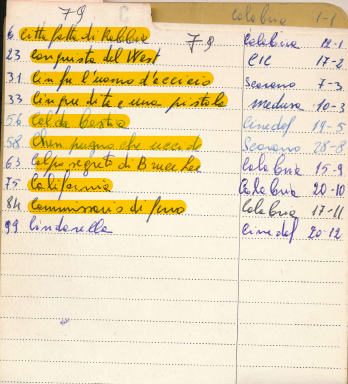 79 C Calabria 1-1
6 città fatta di Rabbia 79 Calabria 12-1
23 conquista del West CIC 17-2
31 Cin fu l'uomo d'acciaio Scorano 7-3
33 Cinque dita e una pistola Medusa 10-3
56 Calda bestia Cinedof 19-5
58 Chen pugno che uccide Scorano 28-8
63 Colpo segreto di Bruce Lee Calabria 15-9
75 California Calabria 20-10
84 Commissario di ferro Calabria 17-11
99 Cindarella Cinedof 20-12